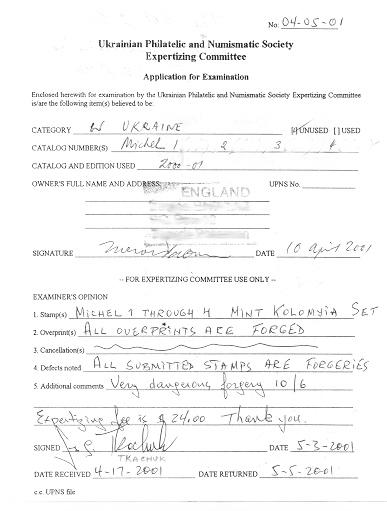 No: 04-05-01
Ukrainian Philatelic and Numismatic Society
Expertizing Committee
Application for Examination
Enclosed herewith for examination by the Ukrainian Philatelic and Numismatic Society Expertizing Committee
is/are the following item(s) believed to be:
CATEGORY W UKRAINE [ ]UNUSED [ ] USED
CATALOG NUMBER(S) Michel 1 2 3 4
CATALOG AND EDITION USED 2000-01
OWNER'S FULL NAME AND ADDRESS: UPNS No.
ENGLAND
SIGNATURE DATE 10 April 2001
-- FOR EXPERTIZING COMMITTEE USE ONLY --
EXAMINER'S OPINION
1. Stamp(s) MICHEL 1 THROUGH 4 MINT KOLOMYIA SET
2. Overprint(s) ALL OVERPRINTS ARE FORGED
3. Cancellation(s)
4. Defects noted ALL SUBMITTED STAMPS ARE FORGERIES
5. Additional comments Very dangerous forgery 10/6
Expertizing fee is $ 24.00 Thank you.
SIGNED DATE 5-3-2001
TKACHUK
DATE RECEIVED 4-17-2001 DATE RETURNED 5-5-2001
c.c. UPNS file